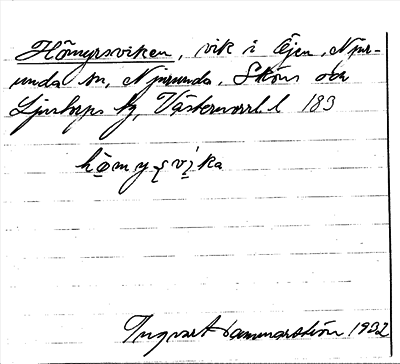 Hömyrsviken, vik i Öjen, Njur-
unda sn, Njurunda, Sköns och
Ljustorps tg, Västernorrl. l 183
hömyşvika
Ingvart Hammarström 1932